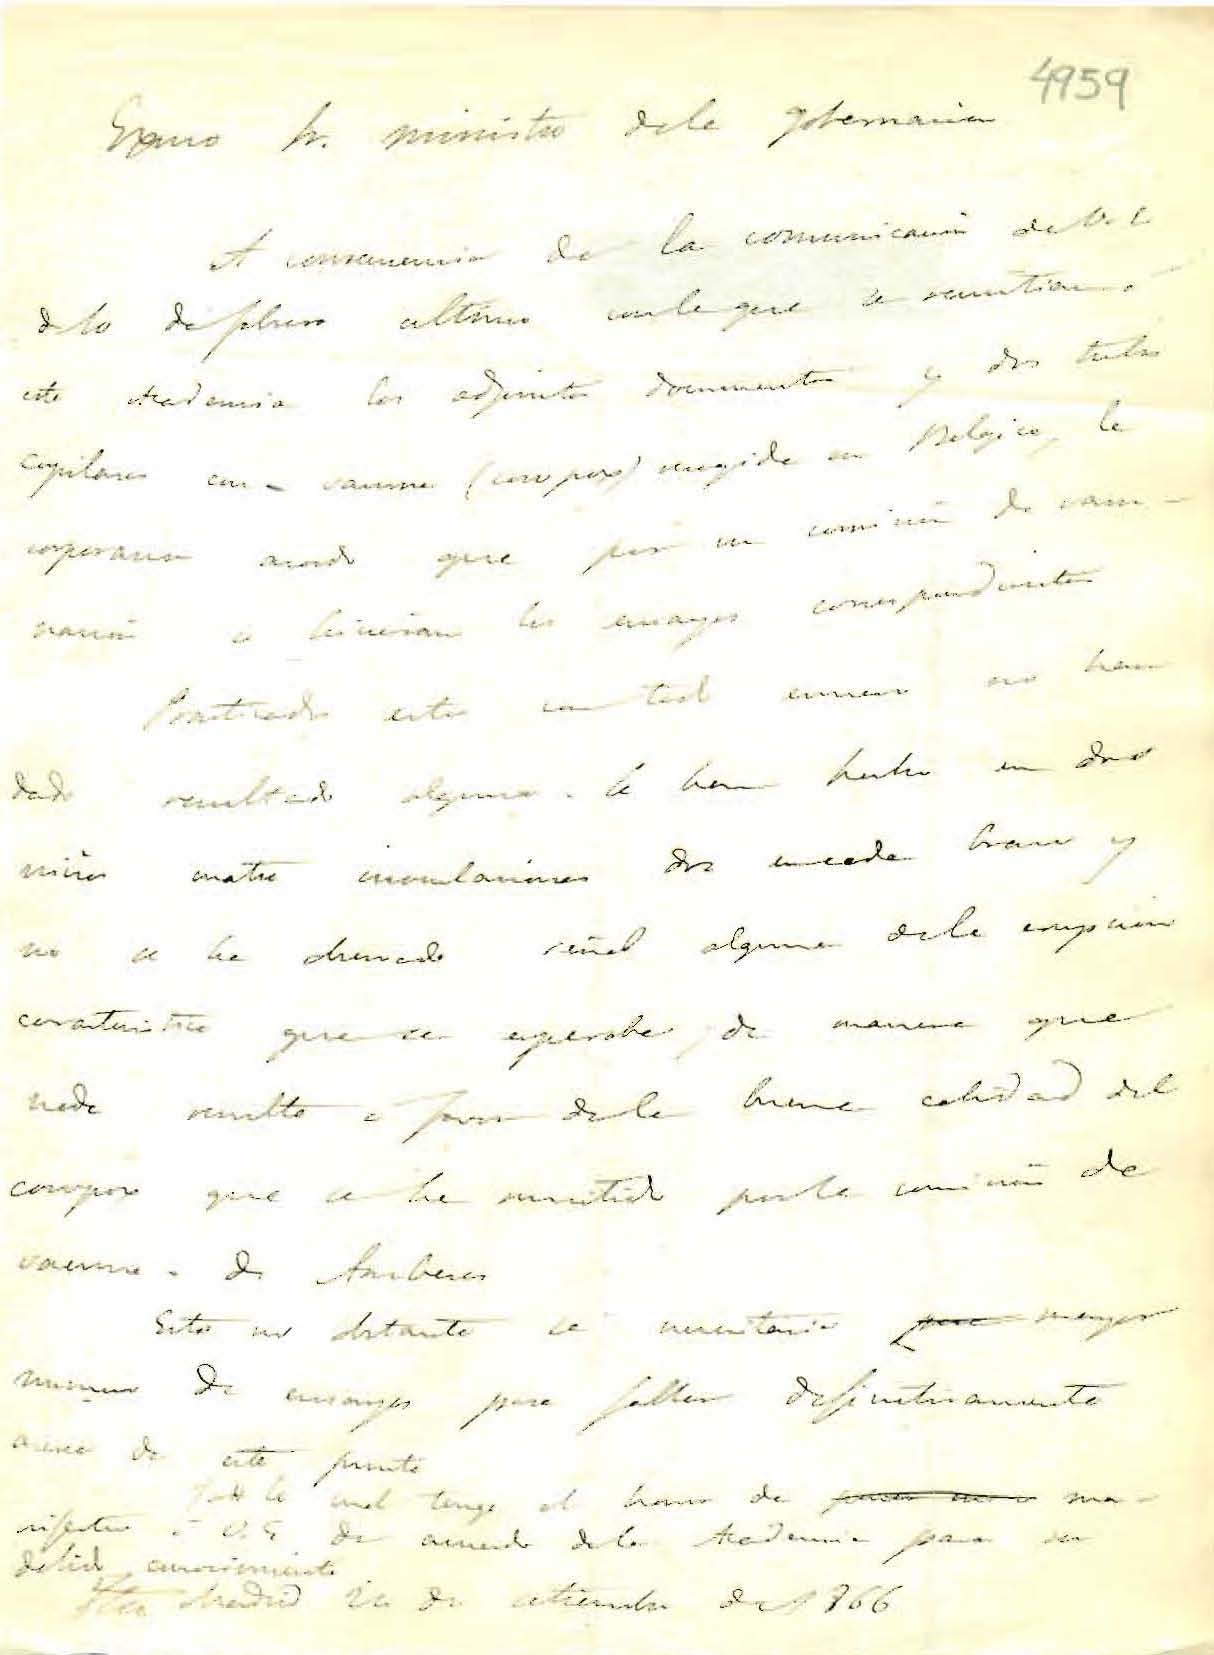 4959
Exmo Sr. ministro dela gobernacion
A consecuencia de la comunicacion de V. E.
de 10 de febrero ultimo conla que se remitian a
esta Academia los adjuntos documentos y dos tubos
capilares con vacuna (cowpox) recogida en Belgica, la
corporacion acordo que por su comision de vacu-
nacion se hicieran los ensayos correspondientes
Practicados estos con tal esmero no han
dado resultado alguno. Se han hecho en dos
niños cuatro inoculaciones dos encada brazo y
no se ha observado señal alguna dela erupcion
caracteristica que se esperaba, de manera que
nada resulta a favor dela buena calidad del
cowpox que se ha remitido porla comision de
vacuna de Amberes
Esto no obstante se necesitaria para mayor
numero de ensayos para fallar definitivamente
acerca de este punto
Todo lo cual tengo el honor de ma-
nifestar á V. E. de acuerdo dela Academia para su
debido conocimiento
Madrid de setiembre de 1866